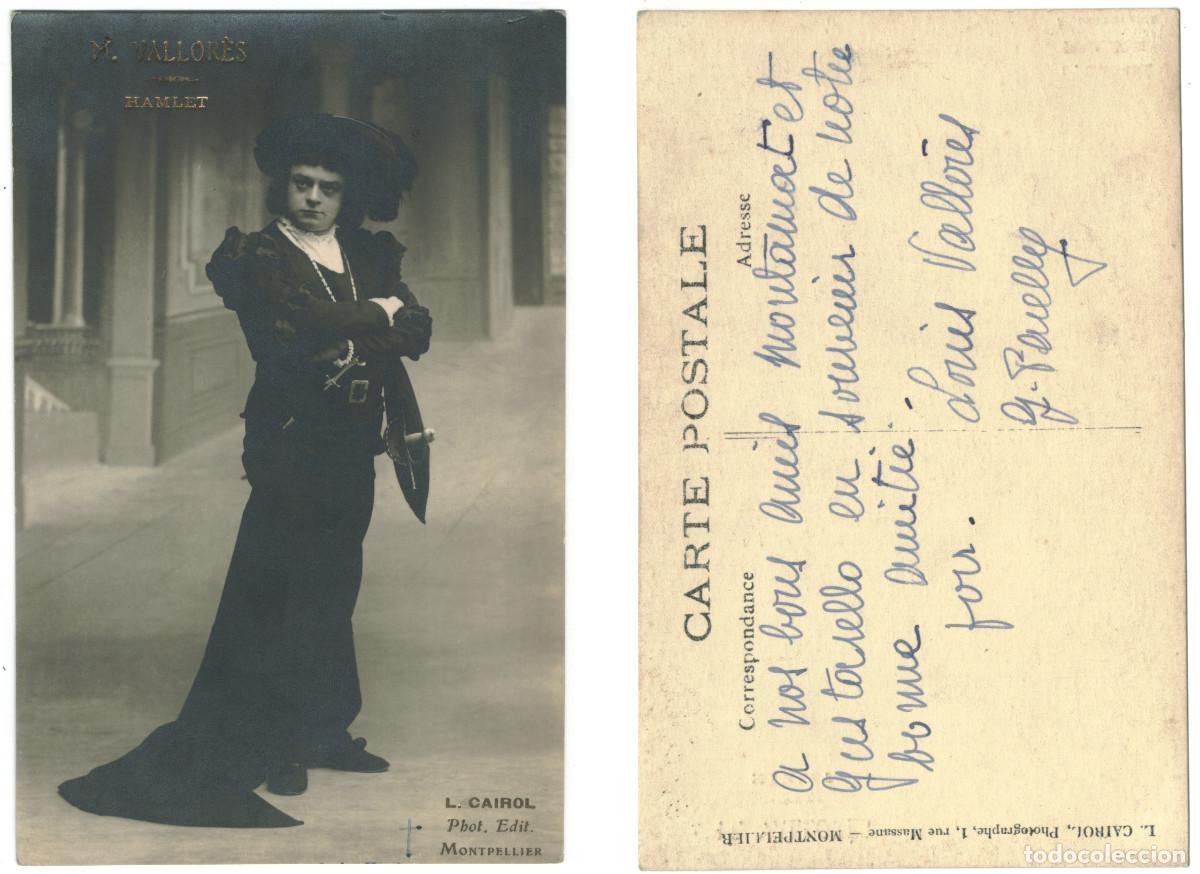 M. VALLORÈS
HAMLET
L. CAIROL
Phot. Edit.
MONTPELLIER
CARTE POSTALE
Correspondance
Adresse
a nos bons amis Montamat et
en souvenir de notre
bonne amitié.
Louis Vallorès
L. CAIROL, Photographe, 1, rue Massane — MONTPELLIER
todocoleccion